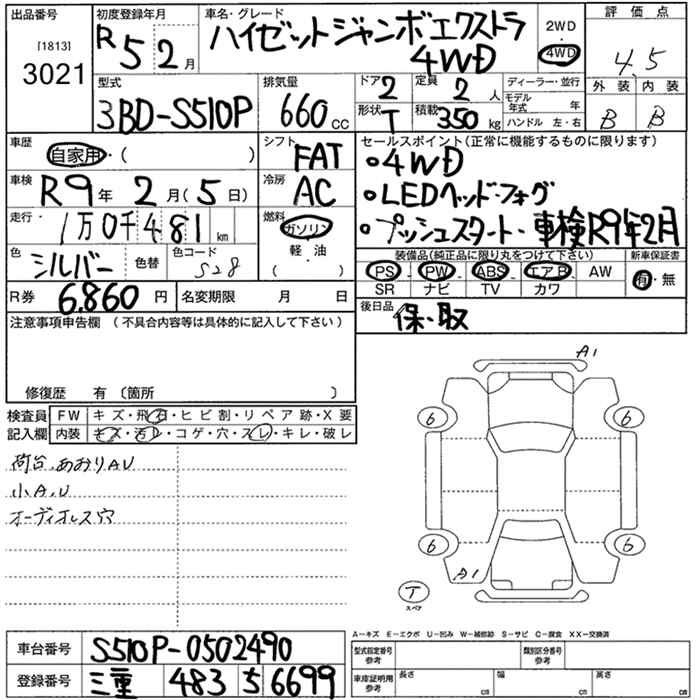 出品番号
[1813]
3021
初度登録年月
R 5 2 月
車名・グレード
ハイゼットジャンボエクストラ
4WD
2WD
・
4WD
評価点
4.5
外装 内装
B B
型式
3BD-S510P
排気量
660 CC
ドア 2
定員 2 人
形状 T
積載 350 kg
ディーラー・並行
モデル年式 年
ハンドル 左・右
車歴
自家用・( )
シフト FAT
車検
R9年 2月(5日)
冷房 AC
走行・
1万0千481 km
燃料
ガソリン
軽・油
( ・ )
色
シルバー
色替
色コード
S28
R券 6.860 円
名変期限 月 日
セールスポイント(正常に機能するものに限ります)
•4WD
•LEDヘッド・フォグ
•プッシュスタート・車検R9年2月
装備品(純正品に限り丸をつけて下さい)
PS・PW・ABS・エアB・AW
SR ナビ TV カワ
新車保証書
有・無
後日品
保・取
注意事項申告欄 (不具合内容等は具体的に記入して下さい)
修復歴 有 〔箇所 〕
検査員記入欄
FW キズ・飛石・ヒビ割・リペア跡・X要
内装 キズ・汚レ・コゲ・穴・スレ・キレ・破レ
荷台、あおりAU
小A,U
オーディオレス穴
A1
6 6
6 6
A1
T
スペア
A-キズ E-エクボ U-凹み W-補修跡 S-サビ C-腐食 XX-交換済
車台番号 S510P-0502490
登録番号 三重 483 5 6699
型式指定番号
参考
類別区分番号
参考
車庫証明用
参考
長さ cm
幅 cm
高さ cm